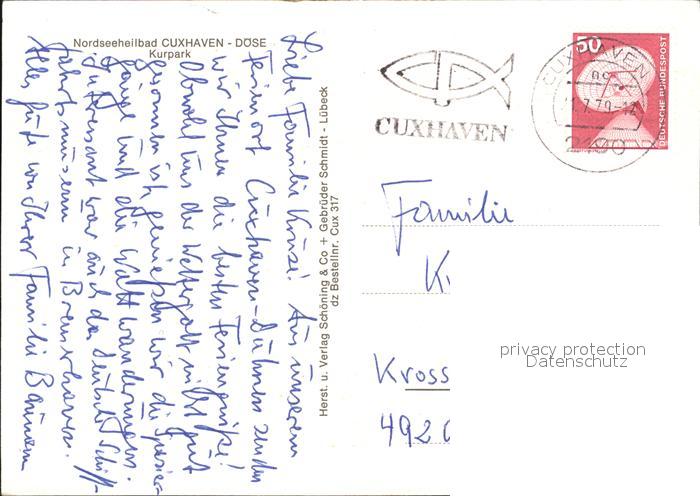 Nordseeheilbad CUXHAVEN - DÖSE
Kurpark
Liebe Familie Kruse! Aus unserem
Ferienort Cuxhaven-Duhnen senden
wir Ihnen die besten Feriengrüße!
Obwohl uns der Wettergott nicht gut
gesonnen ist, genießen wir die Spazier-
gänge und die Wattwanderungen.
Interessant war auch das Deutsche Schiff-
fahrtsmuseum in Bremerhaven.
Alles Gute von Ihrer Familie
Herst. u. Verlag Schöning & Co + Gebrüder Schmidt - Lübeck
dz Bestellnr. Cux 317
CUXHAVEN
50
DEUTSCHE BUNDESPOST
CUXHAVEN
2190
Familie
K
Kross
492
privacy protection
Datenschutz